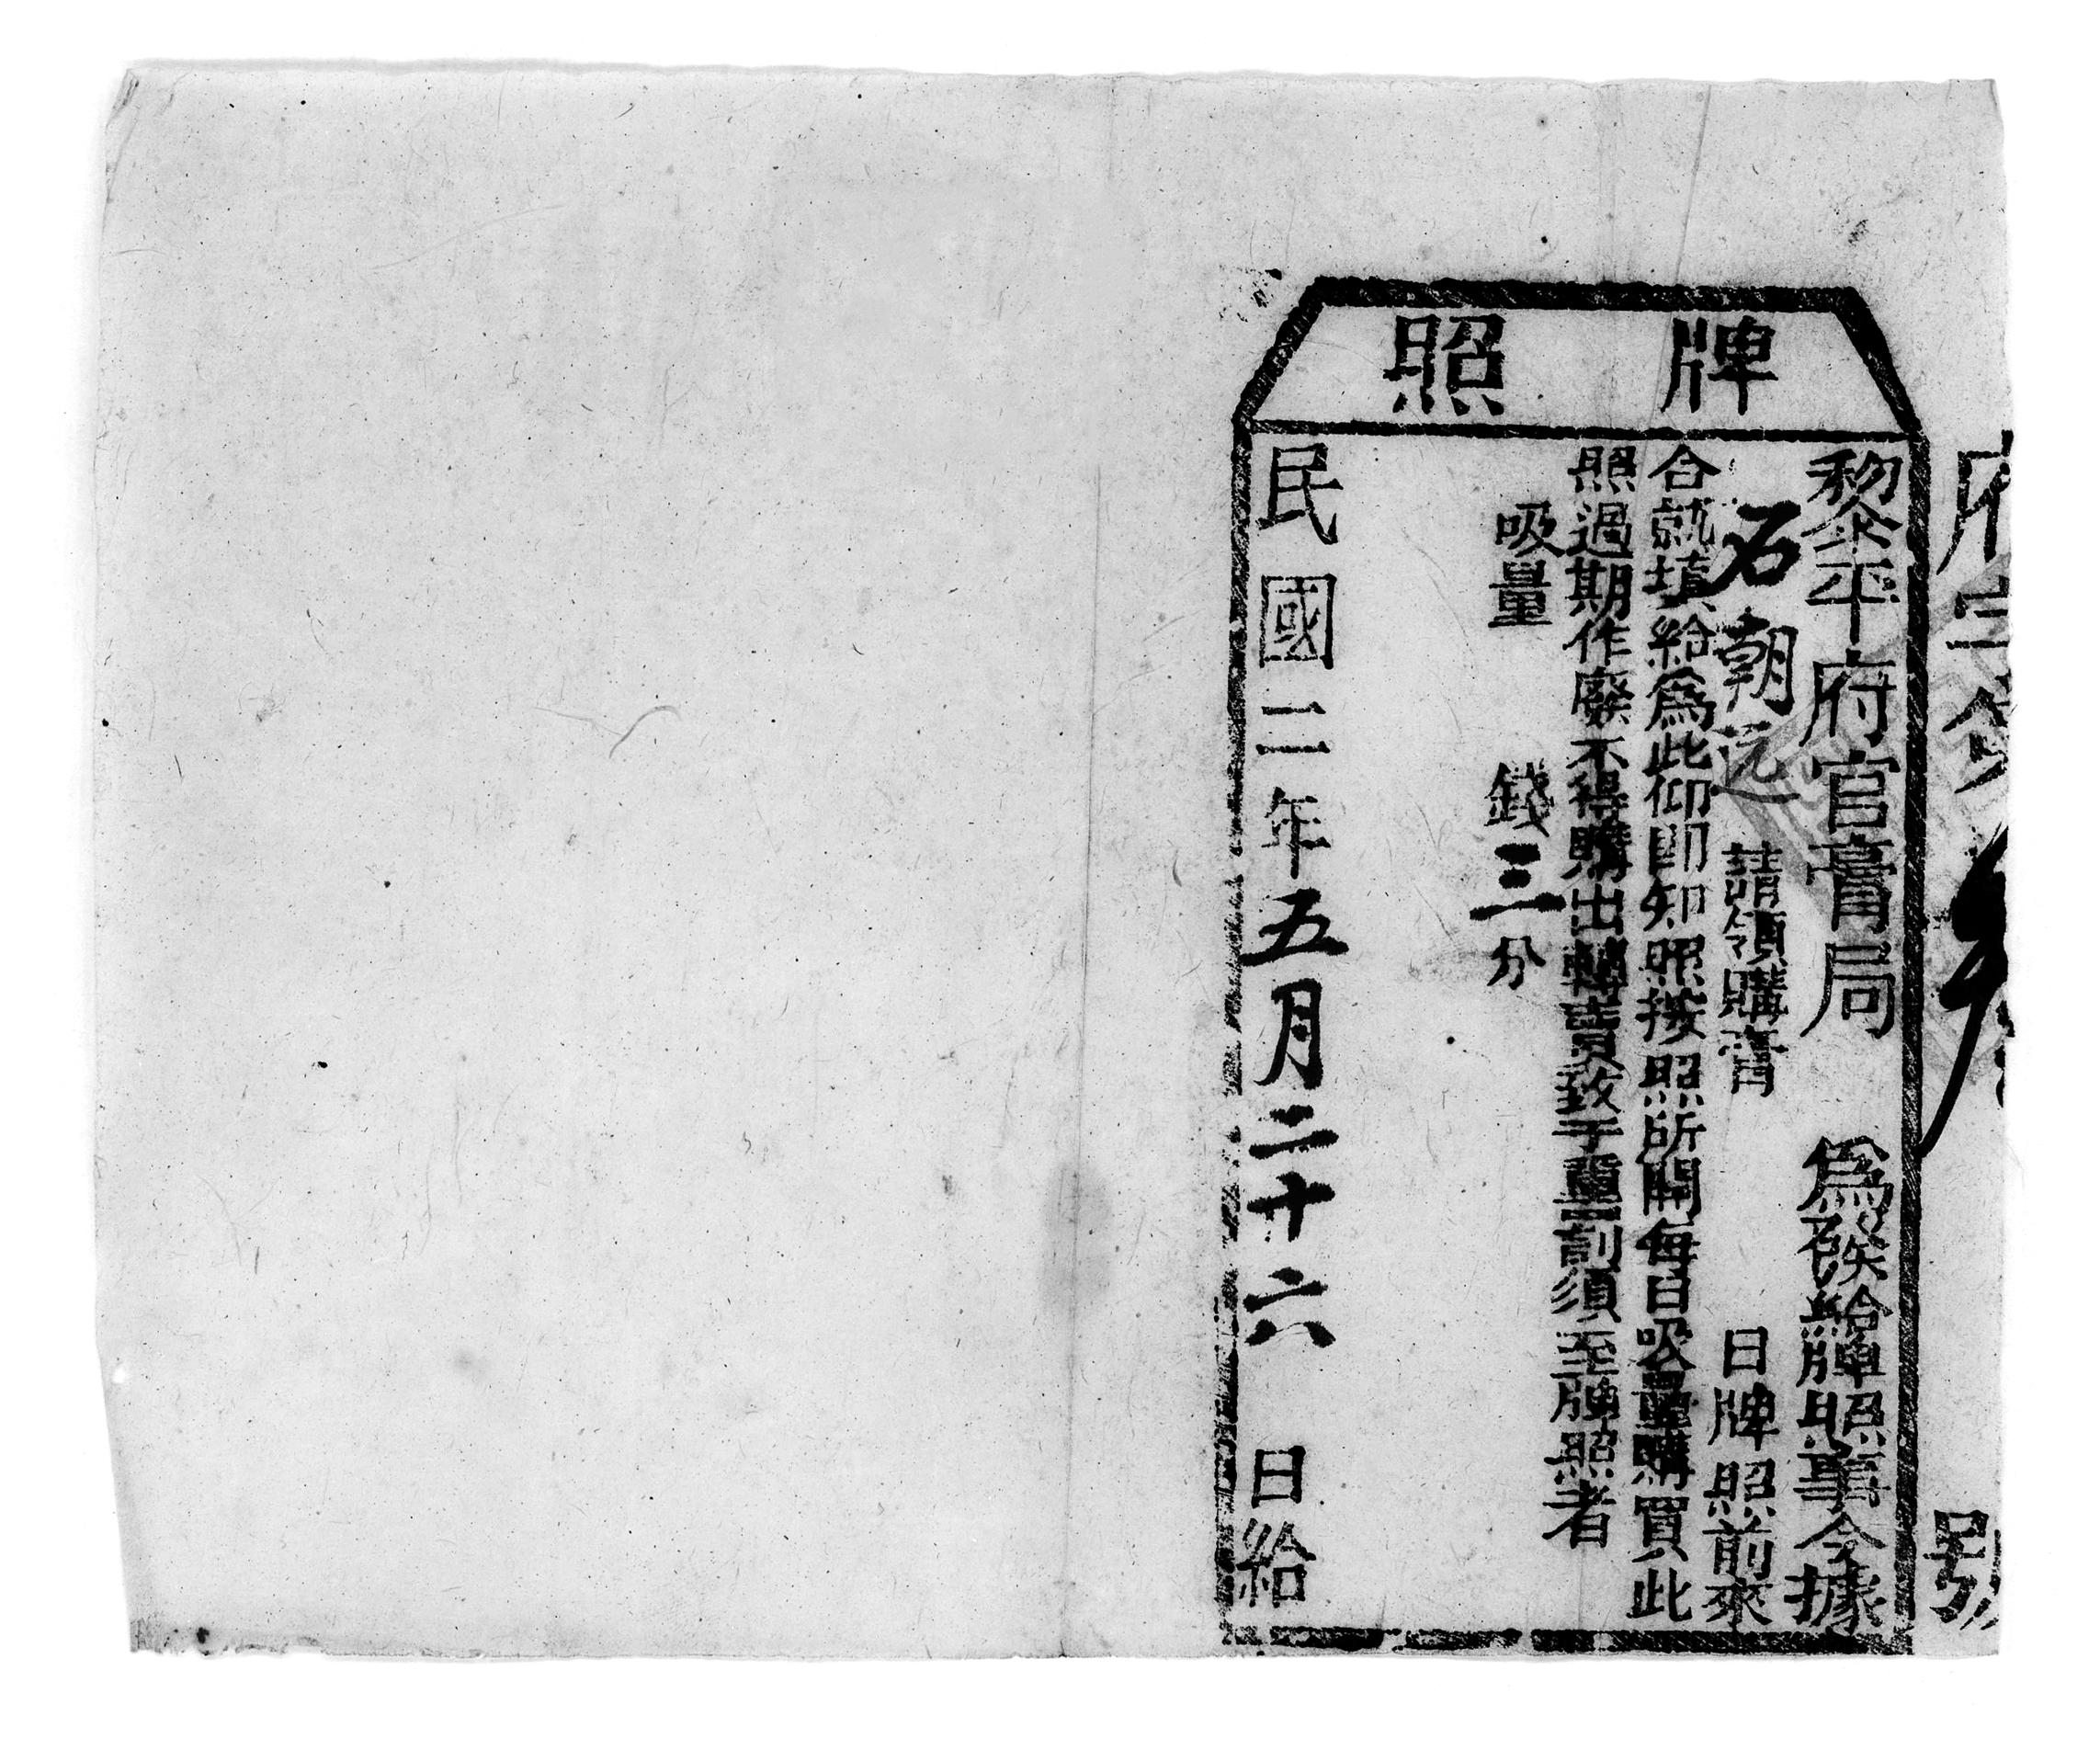 牌照
黎平府官膏局 爲發給牌照事今據
石朝远 請領購膏 日牌照前來
合就填給爲此仰即知照按照所開每日吸量購買此
照過期作廢不得購出轉賣致干重罰須至牌照者
吸量 錢三分
民國二年五月二十六日給
府字第 號